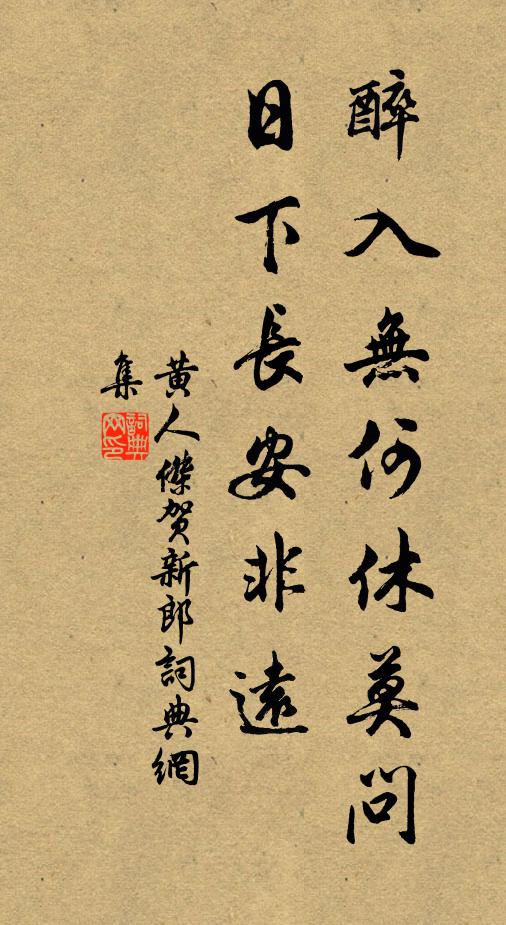 醉入無何休莫問
日下長安非遠
黃人傑賀新郎詞典網
集
詞典
網印